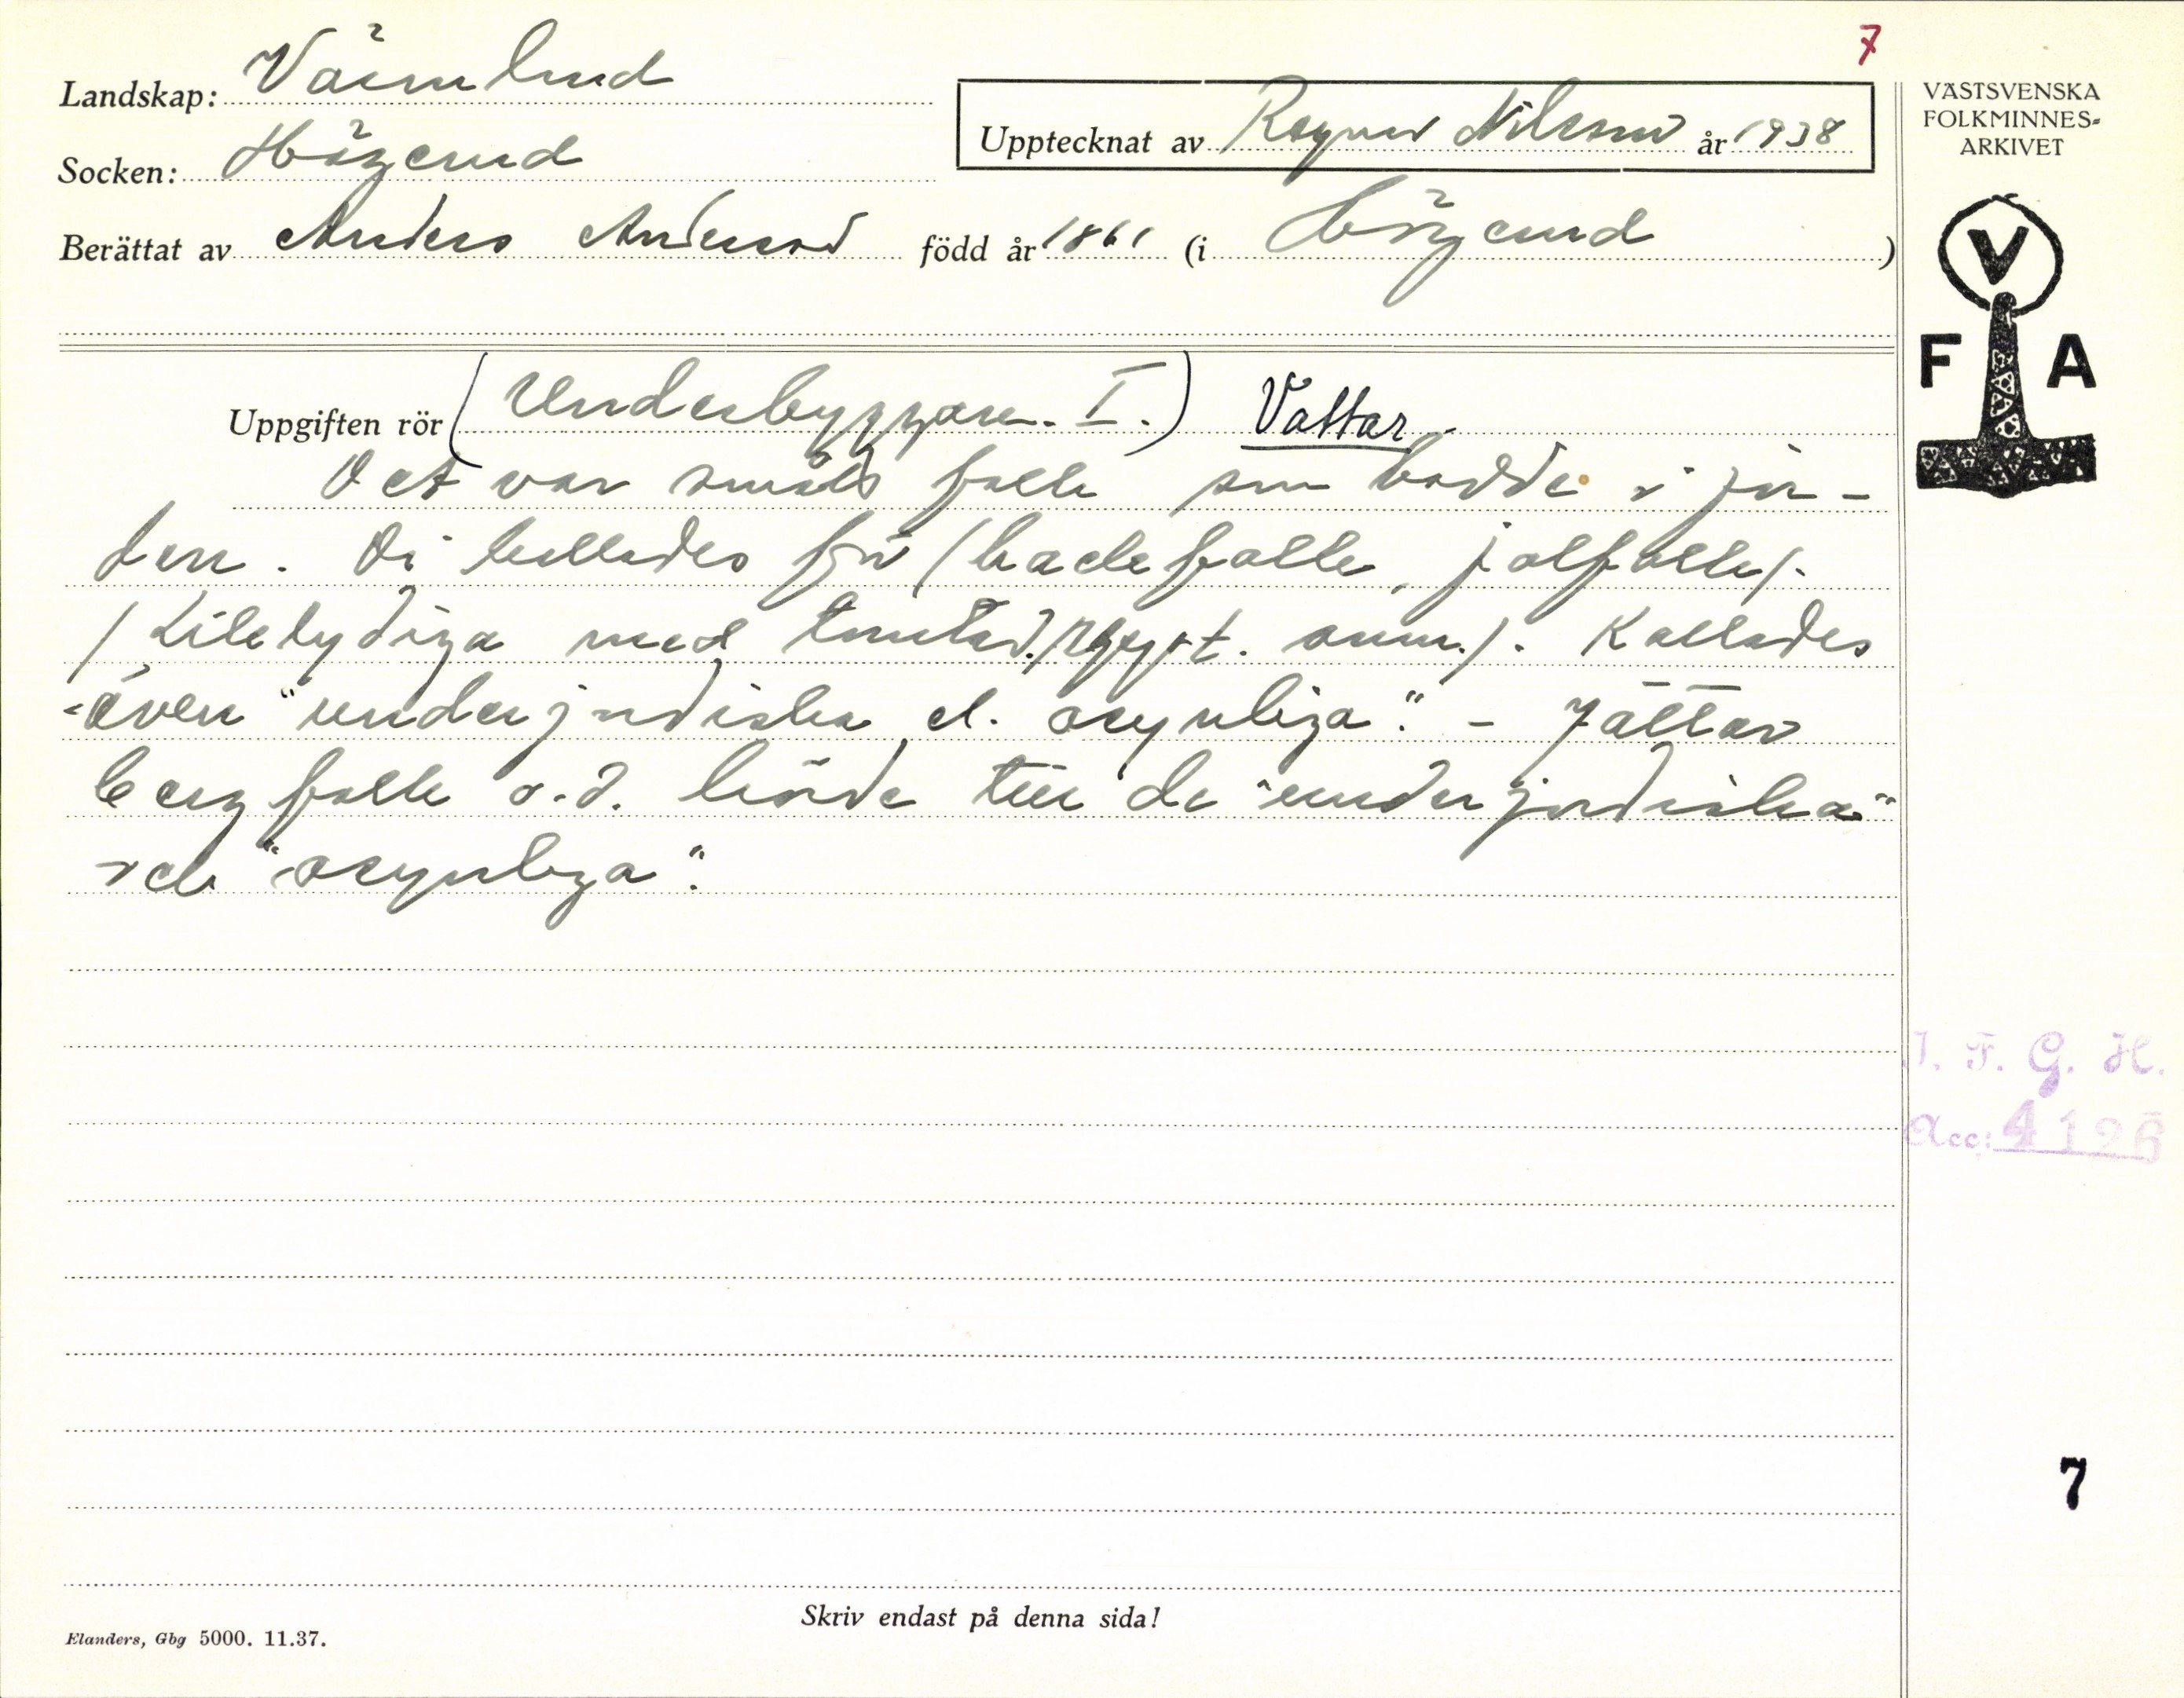 7
Landskap: Värmland
Upptecknat av Ragnar Nilsson år 1938
Socken: Högerud
Berättat av Anders Anderson född år 1861 (i Högerud)
VÄSTSVENSKA
FOLKMINNES-
ARKIVET
V
F A
Uppgiften rör (Underbyggare. I.) Vättar
Det var smått folk som bodde i jor-
den. Di kallades för (backefolk, jolfolk).
(Liktydiga med tomtar. / uppt. anm.). Kallades
även "underjordiska el. osynliga". - Jättar
bergfolk o.d. hörde till de "underjordiska"
och "osynliga".
I. F. G. H.
Acc: 4126
7
Skriv endast på denna sida!
Elanders, Gbg 5000. 11.37.